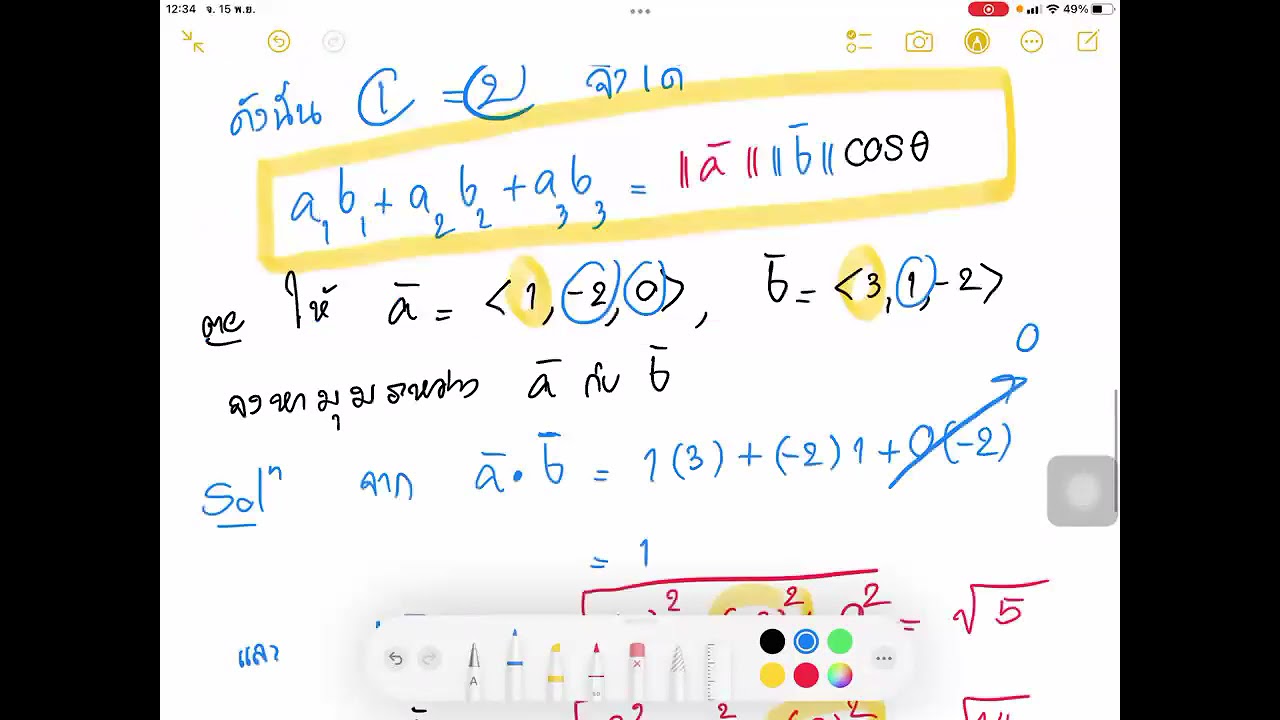 12:34 จ. 15 พ.ย. 49%
ดังนั้น ① = ② จะได้
a₁b₁ + a₂b₂ + a₃b₃ = ‖ā‖ ‖b̄‖ cosθ
ตย ให้ ā = <1, -2, 0>, b̄ = <3, 1, -2>
จงหามุมระหว่าง ā กับ b̄
0
Solⁿ จาก ā · b̄ = 1(3) + (-2)1 + 0(-2)
= 1
และ = √5